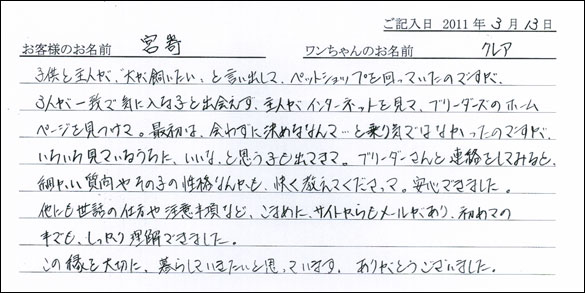 ご記入日 2011年 3月 13日
お客様のお名前 宮嵜 ワンちゃんのお名前 クレア
子供と主人が、"犬が飼いたい"と言い出して、ペットショップを回っていたのですが、
3人が一致で気に入る子と出会えず、主人がインターネットを見て、ブリーダーズのホーム
ページを見つけて。最初は、会わずに決めるなんて…と乗り気ではなかったのですが、
いろいろ見ているうちに、いいな、と思う子も出てきて。ブリーダーさんと連絡をしてみると、
細かい質問やその子の性格なんかも、快く教えてくださって。安心できました。
他にも世話の仕方や注意事項など、こまめに、サイトからもメールがあり、初めての
事でも、しっかり理解できました。
この縁を大切に、暮らしていきたいと思っています。ありがとうございました。